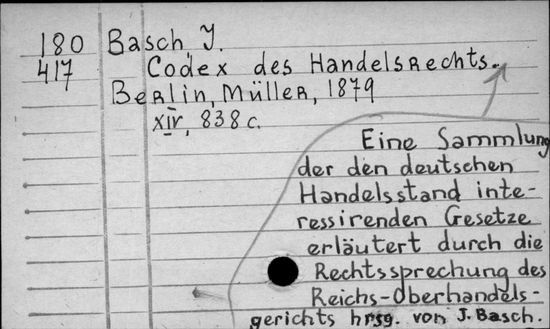 180 Basch, J.
417 Codex des Handelsrechts.
Berlin, Müller, 1879
XIV, 838 c.
Eine Sammlung
der den deutschen
Handelsstand inte-
ressirenden Gesetze
erläutert durch die
Rechtssprechung des
Reichs-Oberhandels-
gerichts hrsg. von J. Basch.